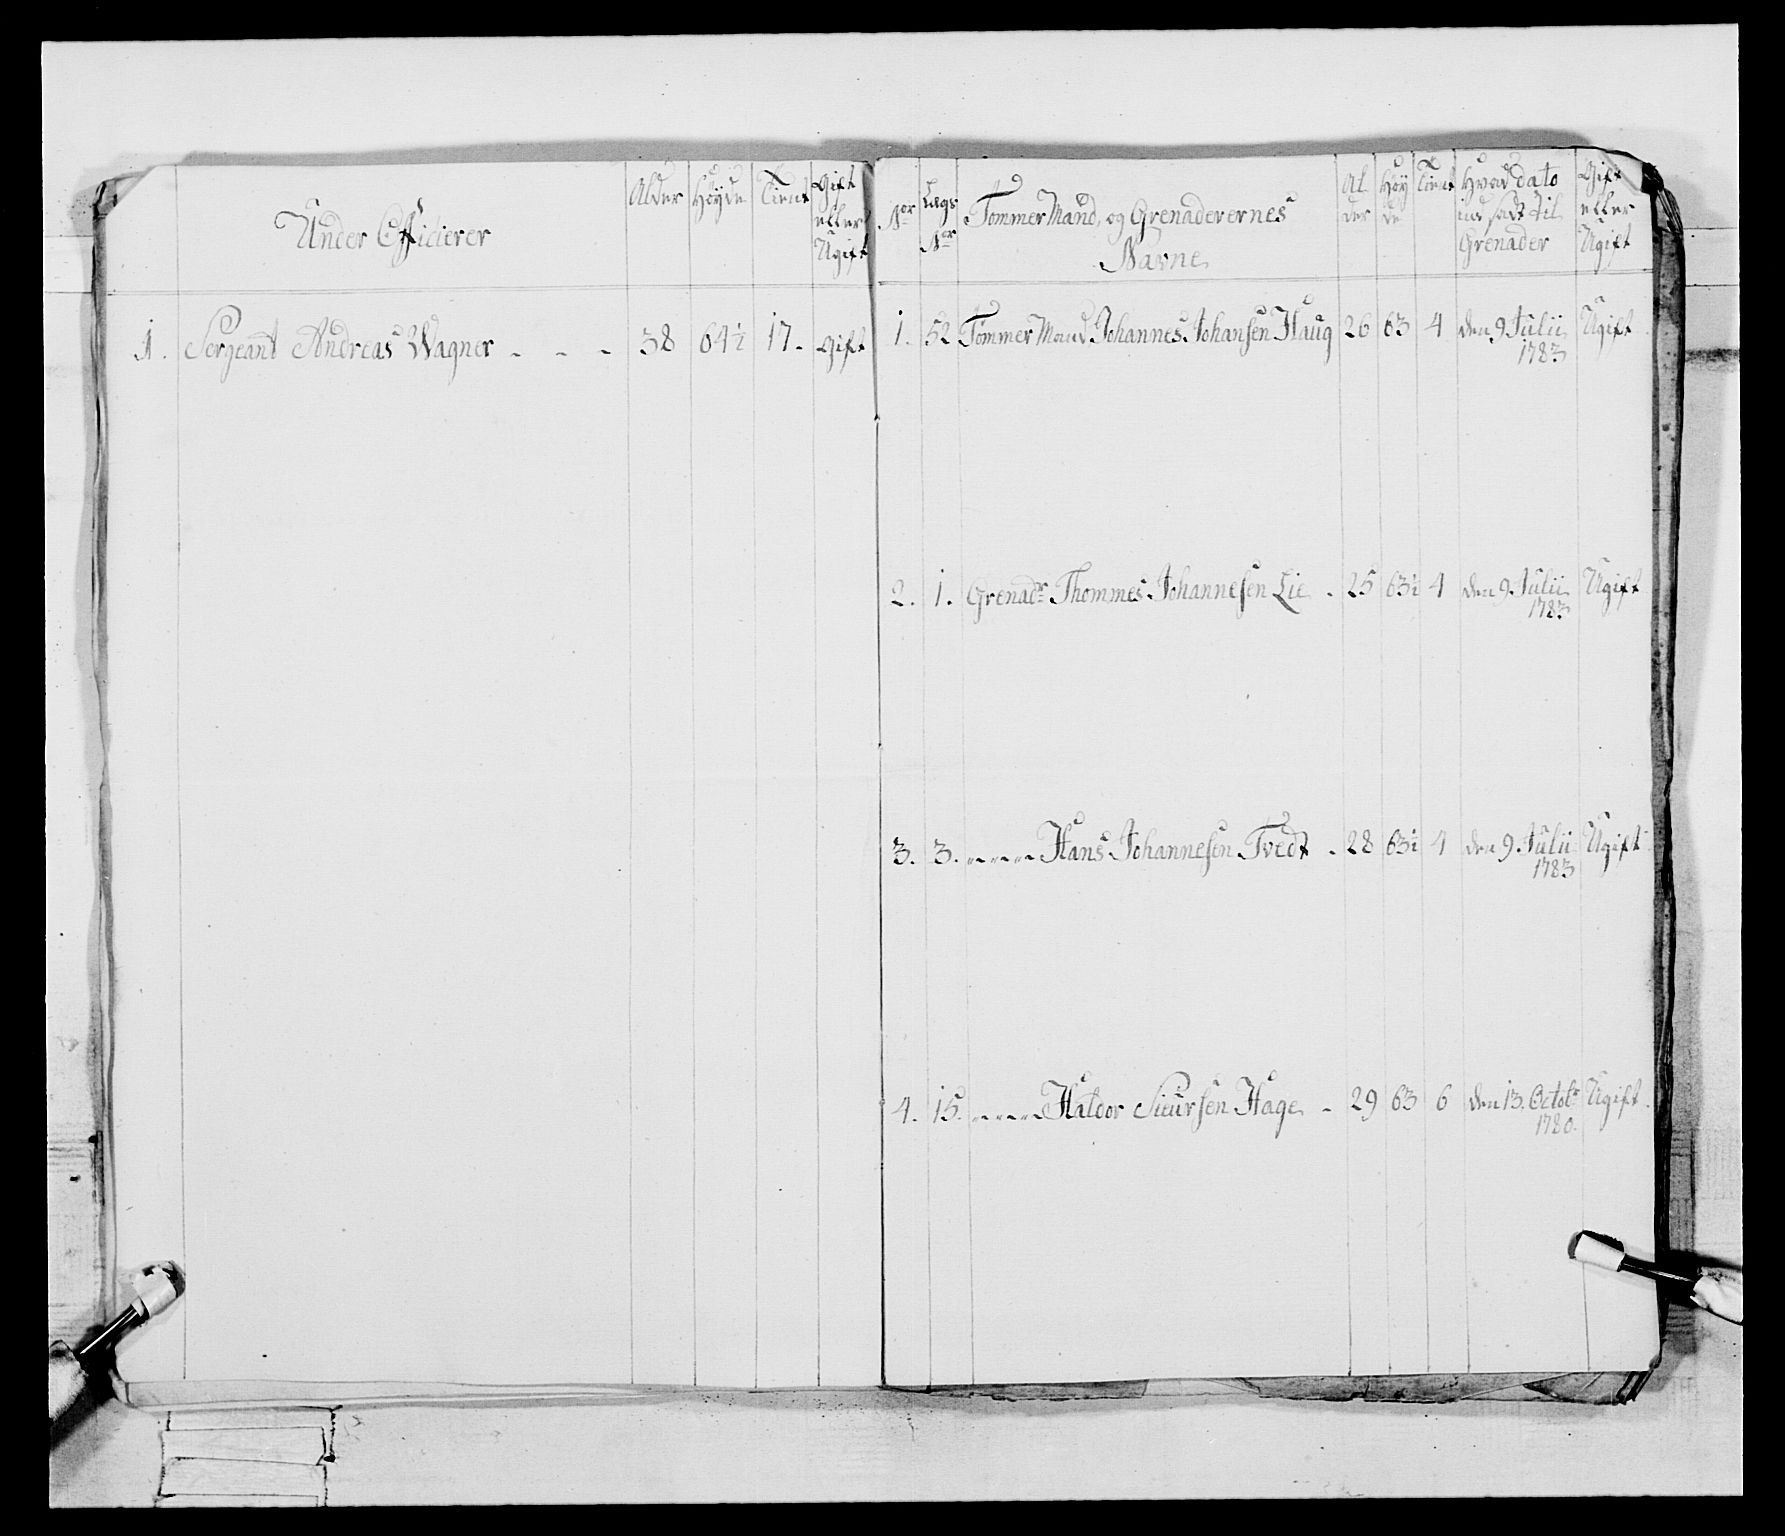 Under Officierer Alder Høyde Tient Gift eller Ugift
1. Sergeant Andreas Wagner - - - 38 64½ 17. Gift
Nor Lægs Nor Tømmer Mænd, og Grenaderernes Navne Al der Høy de Tient Hvad dato ind sadt til Grenader Gift eller Ugift
1. 52 Tømmer Mand Johannes Johansen Haug 26 63 4 den 9 Julii 1783 Ugift
2. 1. Grenadr Thommes Johannesen Lie - 25 63½ 4 den 9 Julii 1783 Ugift
3. 3. - - - - Hans Johannesen Tvedt - 28 63½ 4 den 9 Julii 1783 Ugift
4. 15. - - - - Haldor Siursen Hage - 29 63 6 den 13. Octobr 1780. Ugift